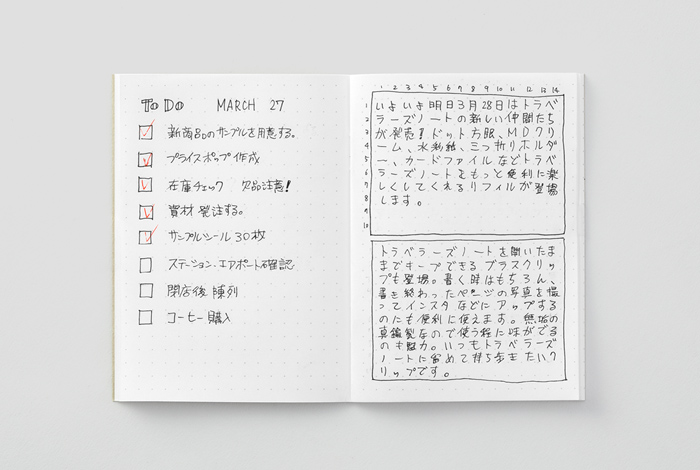 To Do MARCH 27
新商品のサンプルを用意する。
プライスポップ作成
在庫チェック 欠品注意!
資材 発注する。
サンプルシール 30枚
ステーション、エアポート確認
閉店後 陳列
コーヒー購入
1 2 3 4 5 6 7 8 9 10 11 12 13 14
1 いよいよ明日3月28日はトラベ
2 ラーズノートの新しい仲間たち
3 が発売!ドット方眼、MDクリ
4 ーム、水彩紙、三つ折りホルダ
5 ー、カードファイルなどトラベ
6 ラーズノートをもっと便利に楽
7 しくしてくれるリフィルが登場
8 します。
9
10
トラベラーズノートを開いたま
まキープできるブラスクリッ
プも登場。書く時はもちろん、
書き終わったページの写真を撮
ってインスタなどにアップする
のにも便利に使えます。無垢の
真鍮製なので使う程に味がでる
のも魅力。いつもトラベラーズ
ノートに留めて持ち歩きたいク
リップです。